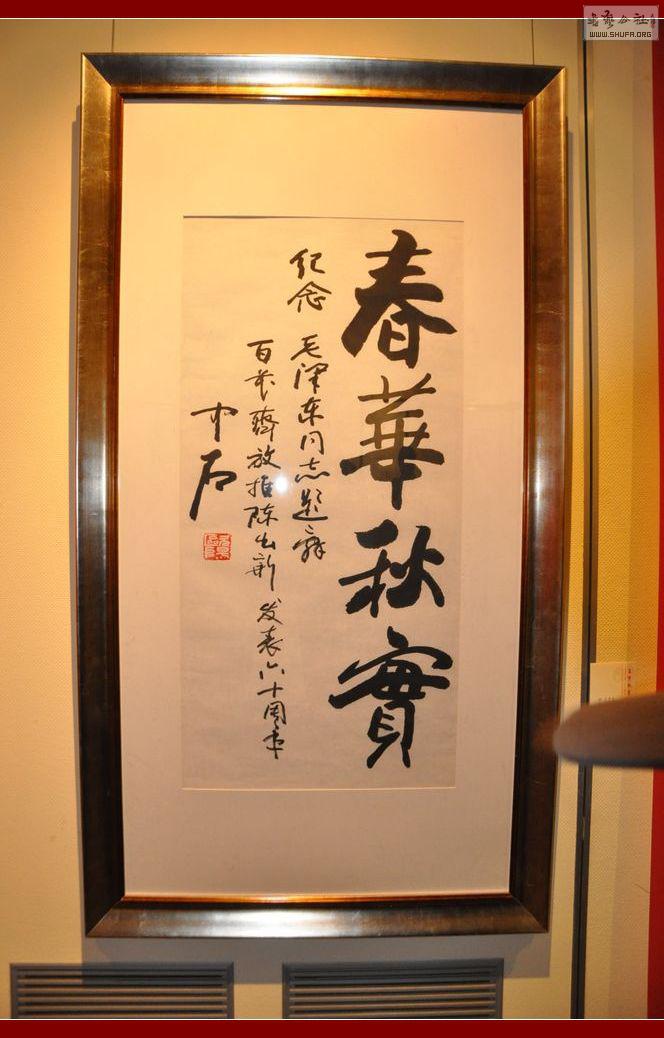 春華秋實
纪念 毛泽东同志题辞
百花齊放推陈出新 发表六十周年
中石
書艺公社
WWW.SHUFA.ORG